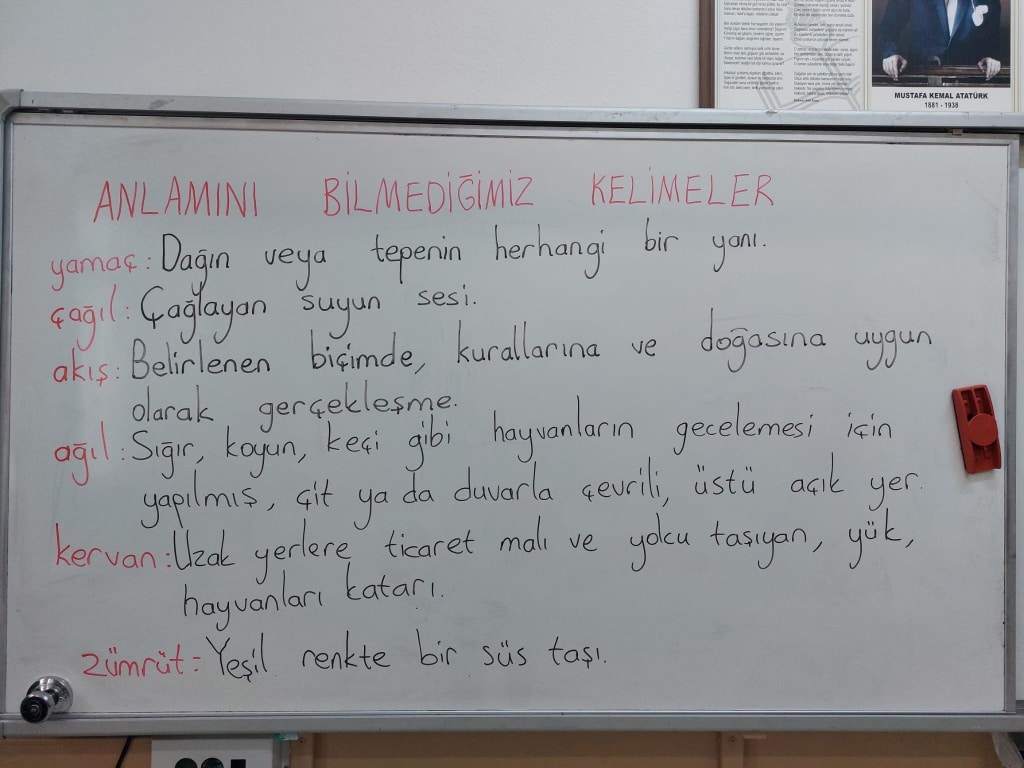 MUSTAFA KEMAL ATATÜRK
1881 - 1938
ANLAMINI BİLMEDİĞİMİZ KELİMELER
yamaç: Dağın veya tepenin herhangi bir yanı.
çağıl: Çağlayan suyun sesi.
akış: Belirlenen biçimde, kurallarına ve doğasına uygun
olarak gerçekleşme.
ağıl: Sığır, koyun, keçi gibi hayvanların gecelemesi için
yapılmış, çit ya da duvarla çevrili, üstü açık yer.
kervan: Uzak yerlere ticaret malı ve yolcu taşıyan, yük,
hayvanları katarı.
zümrüt= Yeşil renkte bir süs taşı.